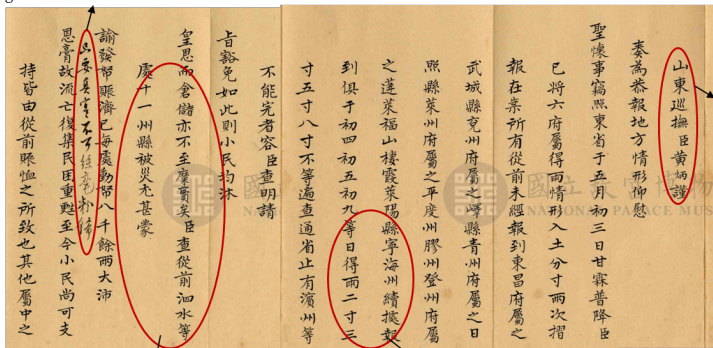 山東巡撫臣黃炳謹
奏為恭報地方情形仰慰
聖懷事竊照東省于五月初三日甘霖普降臣
已將六府屬得雨情形入土分寸兩次摺
報在案所有從前未經報到東昌府屬之
武城縣兗州府屬之嶧縣青州府屬之日
照縣萊州府屬之平度州膠州登州府屬
之蓬萊福山棲霞萊陽縣寧海州續據報
到俱于初四初五初九等日得雨二寸三
寸五寸八寸不等遍查通省止有濱州等
不能完者容臣查明請
旨豁免如此則小民均沐
皇恩而倉儲亦不至糜費矣臣查從前泗水等
處十一州縣被災尤甚蒙
諭發帑賑濟臣每處動帑八千餘兩大沛
此要真實不可絲毫粉飾
恩膏故流亡復集民困重甦至今小民尚可支
持皆由從前賑恤之所致也其他屬中之
國立故宮博物院
NATIONAL PALACE MUSE